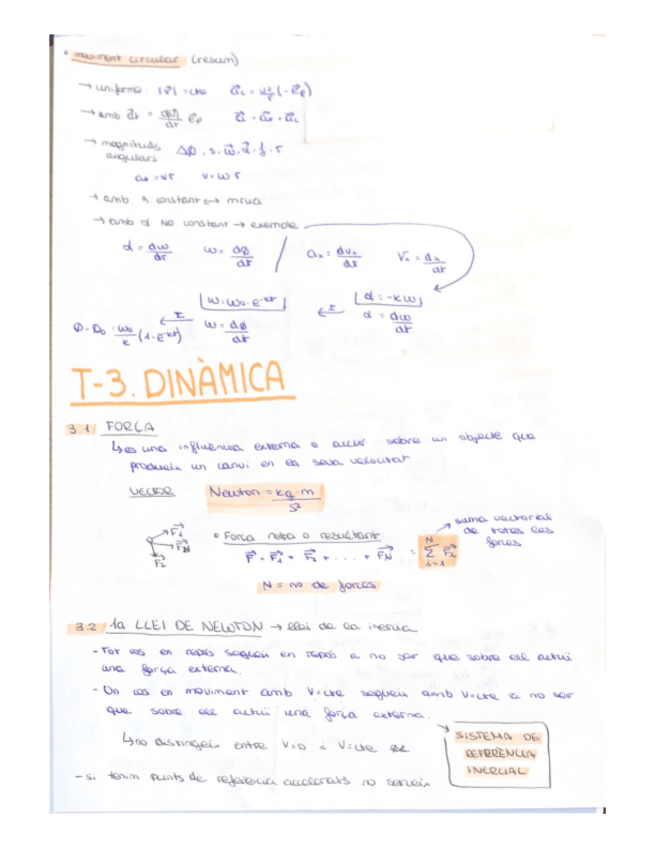 * moviment circular (resum)
→ uniforme: |v⃗| = cte   a⃗c = v²/r (-e⃗r)
→ amb a⃗t = d|v⃗|/dt e⃗   a⃗ = a⃗t + a⃗c
→ magnituds angulars   ΔØ, s, ω⃗, α⃗, f, T
v = ωr
→ amb α constant ↔ mrua
→ amb α NO constant → exemple
α = dω/dt   ω = dØ/dt / aₓ = dvₓ/dt   Vₓ = dₓ/dt
ω = ω₀ · e^-kt   α = -kω
Ø - Ø₀ = ω₀/k (1 - e^-kt)   ω = dØ/dt   α = dω/dt
T-3. DINÀMICA
3.1 FORÇA
↳ es una influència externa o acció sobre un objecte que
produeix un canvi en la seva velocitat
VECTOR   Newton = kg · m / s²
* Força neta o resultant
F⃗ = F⃗₁ + F⃗₂ + . . . + F⃗N = N Σ i=1 F⃗i
→ suma vectorial
de totes les
forces
F⃗₁
F⃗N
F⃗₂
N = no de forces
3.2 1a LLEI DE NEWTON → llei de la inercia
- Tot cos en repòs segueix en repòs a no ser que sobre ell actuï
una força externa.
- Un cos en moviment amb V=cte segueix amb V=cte a no ser
que sobre ell actuï una força externa.
↳ no distingeix entre V=0 i V=cte
→ SISTEMA DE
REFERÈNCIA
INERCIAL
- si tenim punts de referència accelerats no serveix